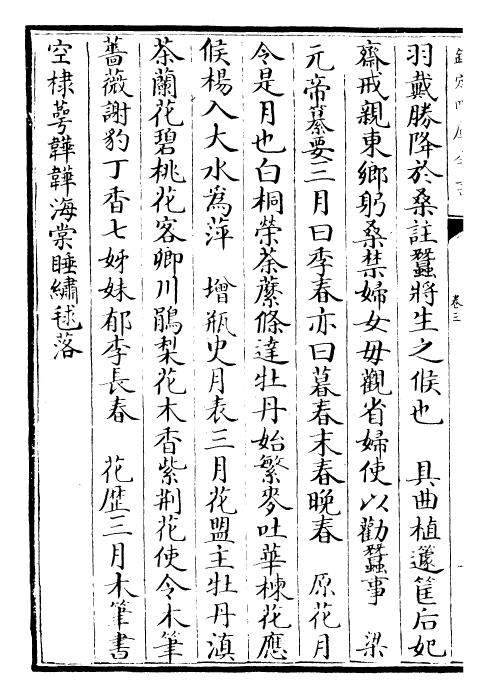 欽定四庫全書
卷三
羽戴勝降於桑註蠶將生之候也　具曲植籧筐后妃
齋戒親東鄉躬桑禁婦女毋觀省婦使以勸蠶事　梁
元帝纂要三月曰季春亦曰暮春末春晚春　原花月
令是月也白桐榮荼蘼條達牡丹始繁麥吐華楝花應
候楊入大水為萍　增瓶史月表三月花盟主牡丹滇
茶蘭花碧桃花客卿川鵑梨花木香紫荆花使令木筆
薔薇謝豹丁香七姊妹郁李長春　花歴三月木筆書
空棣萼韡韡海棠睡繡毬落